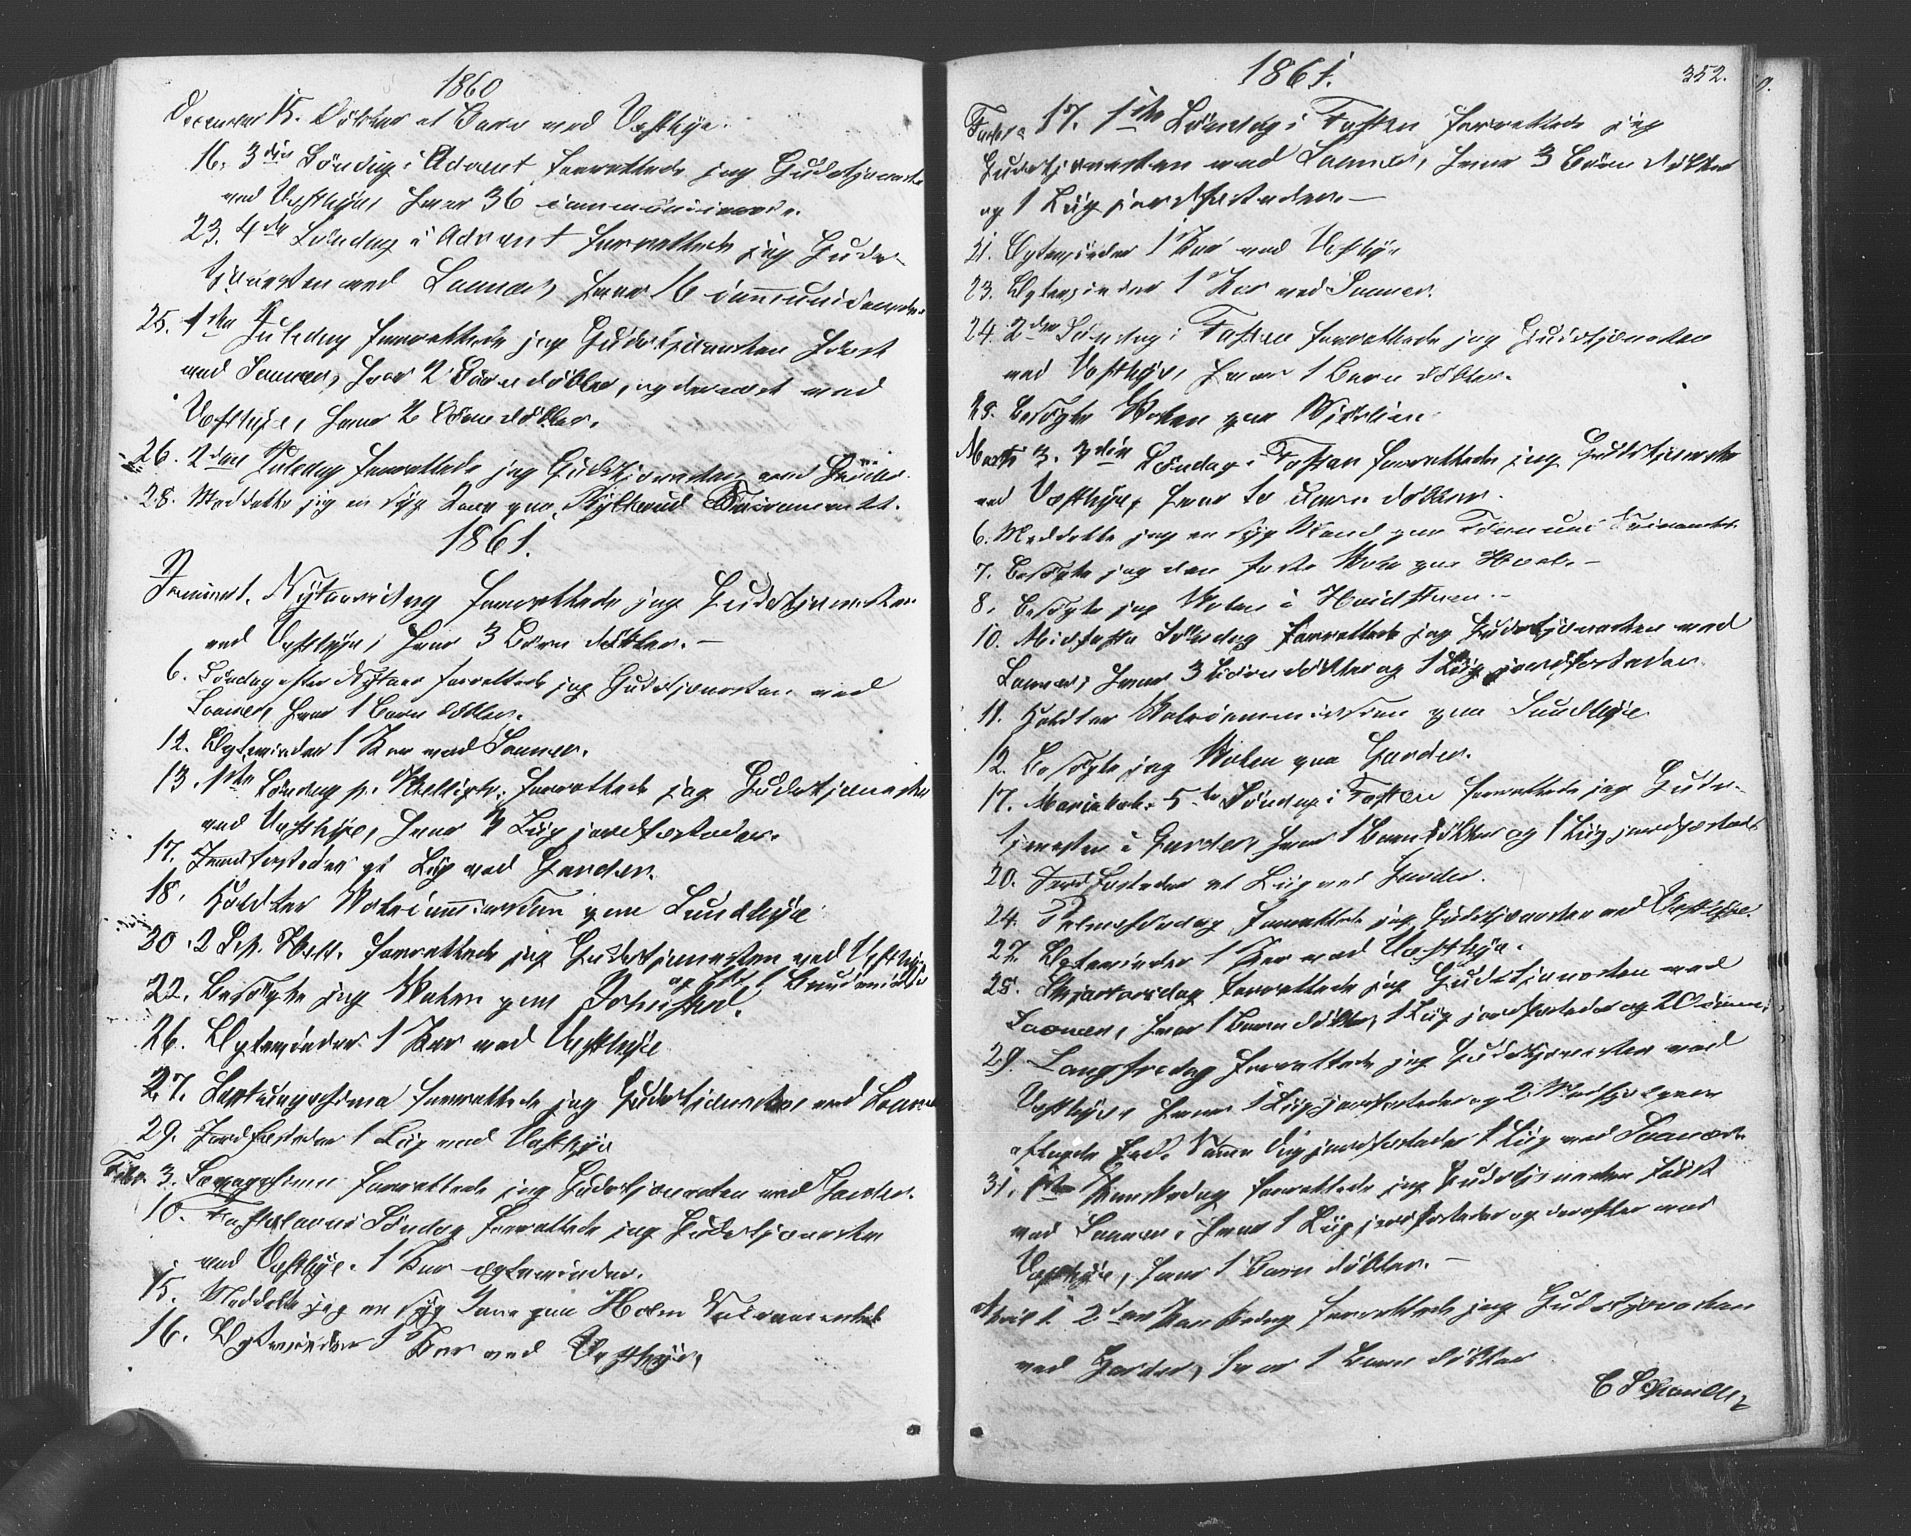 1860
December 15. Døbtes et Barn ved Vestbye.
16. 3die Søndag i Advent forrettede jeg Gudstjenesten
ved Vestbye, hvor 36 communicerede.
23. 4de Søndag i Advent forrettede jeg Guds-
tjenesten ved Saaner, hvor 16 communicerede.
25. 1ste Juledag forrettede jeg Gudstjenesten først
ved Saaner, hvor 2 Børn døbtes, og dernæst ved
Vestbye, hvor 2 Børn døbtes.
26. 2den Juledag forrettede jeg Gudstjenesten ved Garder.
28. Meddelte jeg en syg Kone paa Sacramentet.
1861.
Januar 1. Nytaarsdag forrettede jeg Gudstjenesten
ved Vestbye, hvor 3 Børn døbtes.-
6. Søndag efter Nytaar forrettede jeg Gudstjenesten ved
Saaner, hvor 1 Barn døbtes.
12. Ægteviedes 1 Par ved Saaner.
13. 1ste Søndag p. Helligtr. forrettede jeg Gudstjenesten
ved Vestbye, hvor Liig jordfæstedes.
17. Jordfæstedes et Liig ved Garder.
18. Holdtes Valgcommission paa Sundbye.
20. 2 S. p. Hell. forrettede jeg Gudstjenesten ved Vestbye
og 1
22. Besøgte jeg Skolen paa
26. Ægteviedes 1 Par ved Vestbye
27. Septuagesima forrettede jeg Gudstjenesten ved Saaner
29. Jordfæstedes 1 Liig ved Vestbye
Febr. 3. Sexagesima forrettede jeg Gudstjenesten ved Garder.
10. Fastelavns Søndag forrettede jeg Gudstjenesten
ved Vestbye. 1 Par ægteviedes.
15. Meddelte jeg en syg Kone paa Holm Sacramentet
16. Ægteviedes 1 Par ved Vestbye,
1861.
352.
Febr. 17. 1ste Søndag i Fasten forrettede jeg
Gudstjenesten ved Saaner, hvor 3 Børn døbtes
og 1 Liig jordfæstedes.-
21. Ægteviedes 1 Par ved Vestbye
23. Ægteviedes 1 Par ved Saaner.
24. 2den Søndag i Fasten forrettede jeg Gudstjenesten
ved Vestbye, hvor 1 Barn døbtes.
Besøgte Skolen paa
Marts 3. 3die Søndag i Fasten forrettede jeg Gudstjeneste
ved Vestbye, hvor to Børn døbtes.
6. Meddelte jeg en syg Mand paa Sacramentet
7. Besøgte jeg den faste Skole paa Hoel.-
8. Besøgte jeg Skolen i
10. Midfaste Søndag forrettede jeg Gudstjenesten ved
Saaner, hvor 3 Børn døbtes og 1 Liig jordfæstedes.
11. Holdtes paa Sundbye.
12. Besøgte jeg Skolen paa Garder.
17. Mariæbeb. 5te Søndag i Fasten forrettede jeg Guds-
tjenesten i Garder, hvor 1 Barn døbtes og 1 Liig jordfæstedes
20. Jordfæstedes et Liig ved Garder.
24. Palmesøndag forrettede jeg Gudstjenesten ved Vestbye.
27. Ægteviedes 1 Par ved Vestbye.
28. Skjærtorsdag forrettede jeg Gudstjenesten ved
Saaner, hvor 1 Barn døbtes, 1 Liig jordfæstedes og 20
29. Langfredag forrettede jeg Gudstjenesten ved
Vestbye, hvor 1 Liig jordfæstedes og 2 Medhjelpere
aflagde Eed. Samme Dag jordfæstedes 1 Liig ved Saaner.
31. 1ste Paaskedag forrettede jeg Gudstjenesten først
ved Saaner, hvor 1 Liig jordfæstedes og derefter ved
Vestbye, hvor 1 Barn døbtes.-
April 1. 2den Paaskedag forrettede jeg Gudstjenesten
ved Garder, hvor 1 Barn døbtes